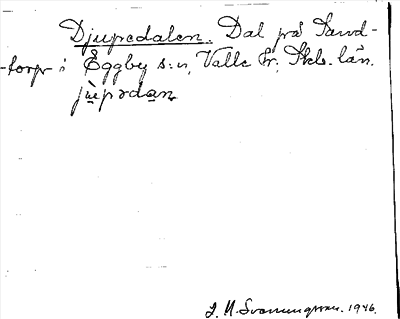 Djupedalen. Dal på Sand-
-torp i Eggby s:n, Valle hr; Skb. län.
jùpədan
J. N. Svanungsson. 1946.